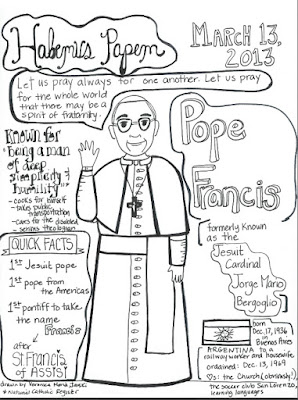 Habemus Papem
MARCH 13,
2013
Let us pray always for one another. Let us pray
for the whole world
that there may be a
spirit of fraternity.
Pope
Francis
Known for
"being a man of
deep
simplicity &
humility"
- cooks for himself
- takes public
transportation
- cares for the disabled
- serious theologian
formerly known
as the
Jesuit
Cardinal
Jorge Mario
Bergoglio
QUICK FACTS
1st Jesuit pope
1st pope from
the Americas
1st pontiff to take
the name
Francis
after
St. Francis
of Assisi
born
Dec. 17, 1936
in
Buenos Aires
ARGENTINA to a
railway worker and housewife
ordained: Dec. 13, 1969
♡s: the Church (obviously!),
the soccer club San Lorenzo,
learning languages
drawn by Veronica Maria
National Catholic Register